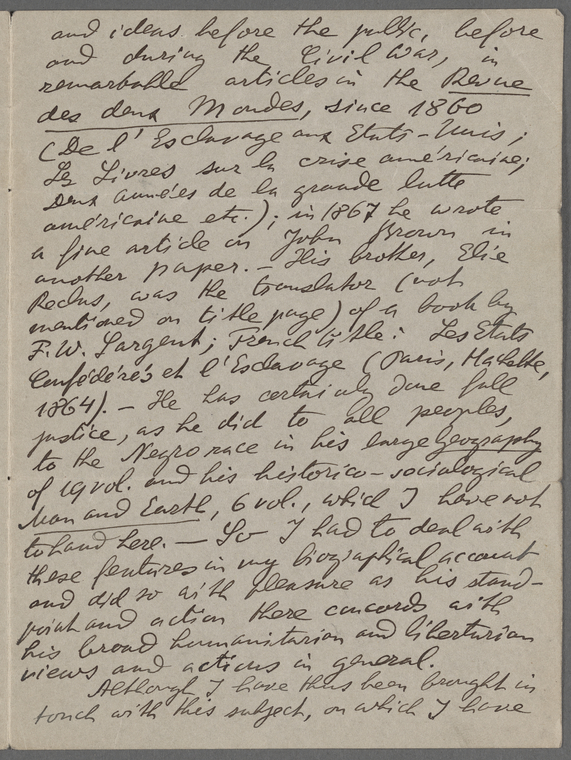 and ideas before the public, before
and during the Civil War, in
remarkable articles in the Revue
des deux Mondes, since 1860
(De l'Esclavage aux Etats-Unis;
Les Livres sur la crise américaine;
Deux années de la grande lutte
américaine etc.); in 1867 he wrote
a fine article on John Brown in
another paper. — His brother, Elie
Reclus, was the translator (not
mentioned on title page) of a book by
F. W. Sargent; French title: Les Etats
Confédérés et l'Esclavage (Paris, Hachette,
1864). — He has certainly done full
justice, as he did to all peoples,
to the Negro race in his large Geography
of 19 vol. and his historico-sociological
Man and Earth, 6 vol., which I have not
to hand here. — So I had to deal with
these features in my biographical account
and did so with pleasure as his stand-
point and action there concords with
his broad humanitarian and libertarian
views and actions in general.
Although I have thus been brought in
touch with this subject, on which I have